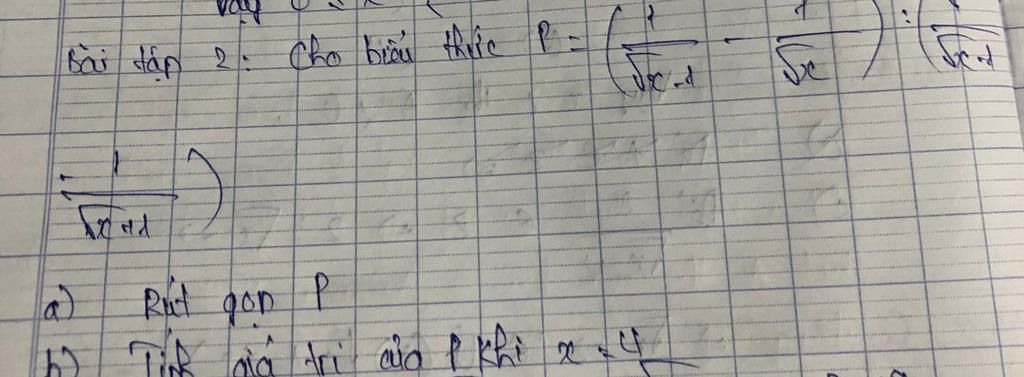 Bài tập 2: Cho biểu thức P = (1/(√x-1) - 1/√x) : (1/(√x-1)
- 1/(√x+1))
a) Rút gọn P
b) Tính giá trị của P khi x = 4